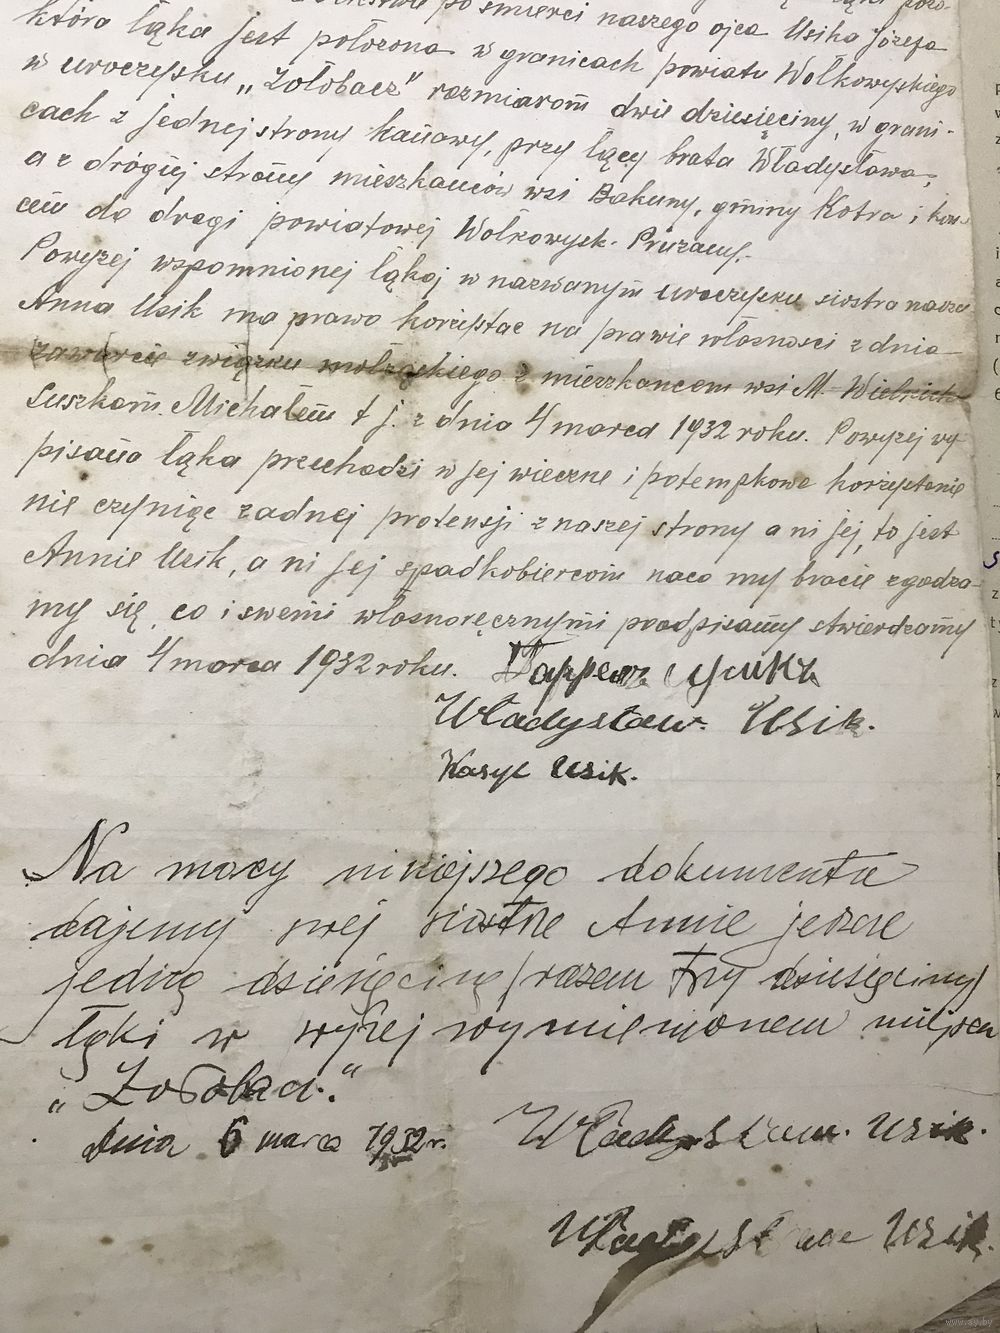 po śmierci naszego ojca Usika Józefa
która łąka jest położona w granicach powiatu Wołkowyskiego
w uroczysku „Żołobacz" rozmiarom dwie dziesięciny, w grani-
cach z jednej strony kanawy, przy łący brata Władysława,
a z drógiej strony mieszkańców wsi Bakuny, gminy Kotra i koń-
cem do drogi powiatowej Wołkowysk-Prużany.
Powyżej wspomnionej łąkoj w nazwanym uroczysku siostra nasza
Anna Usik ma prawo korzystać na prawie własności z dnia
zawarcia związku małżeskiego z mieszkańcem wsi M-Wielkich
Suszkom Michałem t j. z dnia 4 marca 1932 roku. Powyżej wy-
pisana łąka przechodzi w jej wieczne i potempkowe korzystanie
nie czyniąc żadnej protensji z naszej strony a ni jej, to jest
Annie Usik, a ni jej spadkobiercom naco my bracie zgadza-
my się, co i swemi własnoręcznymi poodpisamy stwierdzamy
dnia 4 marca 1932 roku.
Władysław. Usik.
Kasyl Usik.
Na mocy niniejszego dokumenta
dajemy swej siostrze Annie jeszcze
jedną dziesięcinę (razem trzy dziesięciny)
łąki w wyżej wymienionem miejscu
„Żołobacz."
dnia 6 marca 1932 r.
Władysław. Usik.
Władysław Usik.
www.ay.by